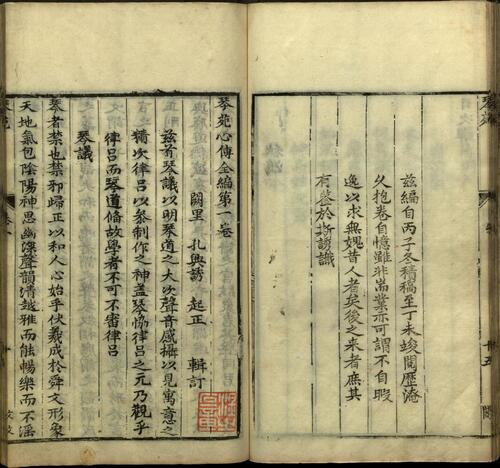 茲編自丙子冬積稿至丁未竣閱歷淹
久抱卷自憶雖非耑業亦可謂不自暇
逸以求無媿昔人者矣後之來者庶其
有鑒於斯誘識
琴苑心傳全編第一卷
闕里 孔興誘 起正 輯訂
茲有琴議以明琴道之大次聲音感攝以見寓意之
猶次律呂以叅制作之神葢琴協律呂之元乃觀乎
律呂而琴道備故學者不可不審律呂
琴議
琴者禁也禁邪歸正以和人心始乎伏羲成於舜文形象
天地氣包陰陽神思幽深聲韻清越雅而能暢樂而不淫
琴苑